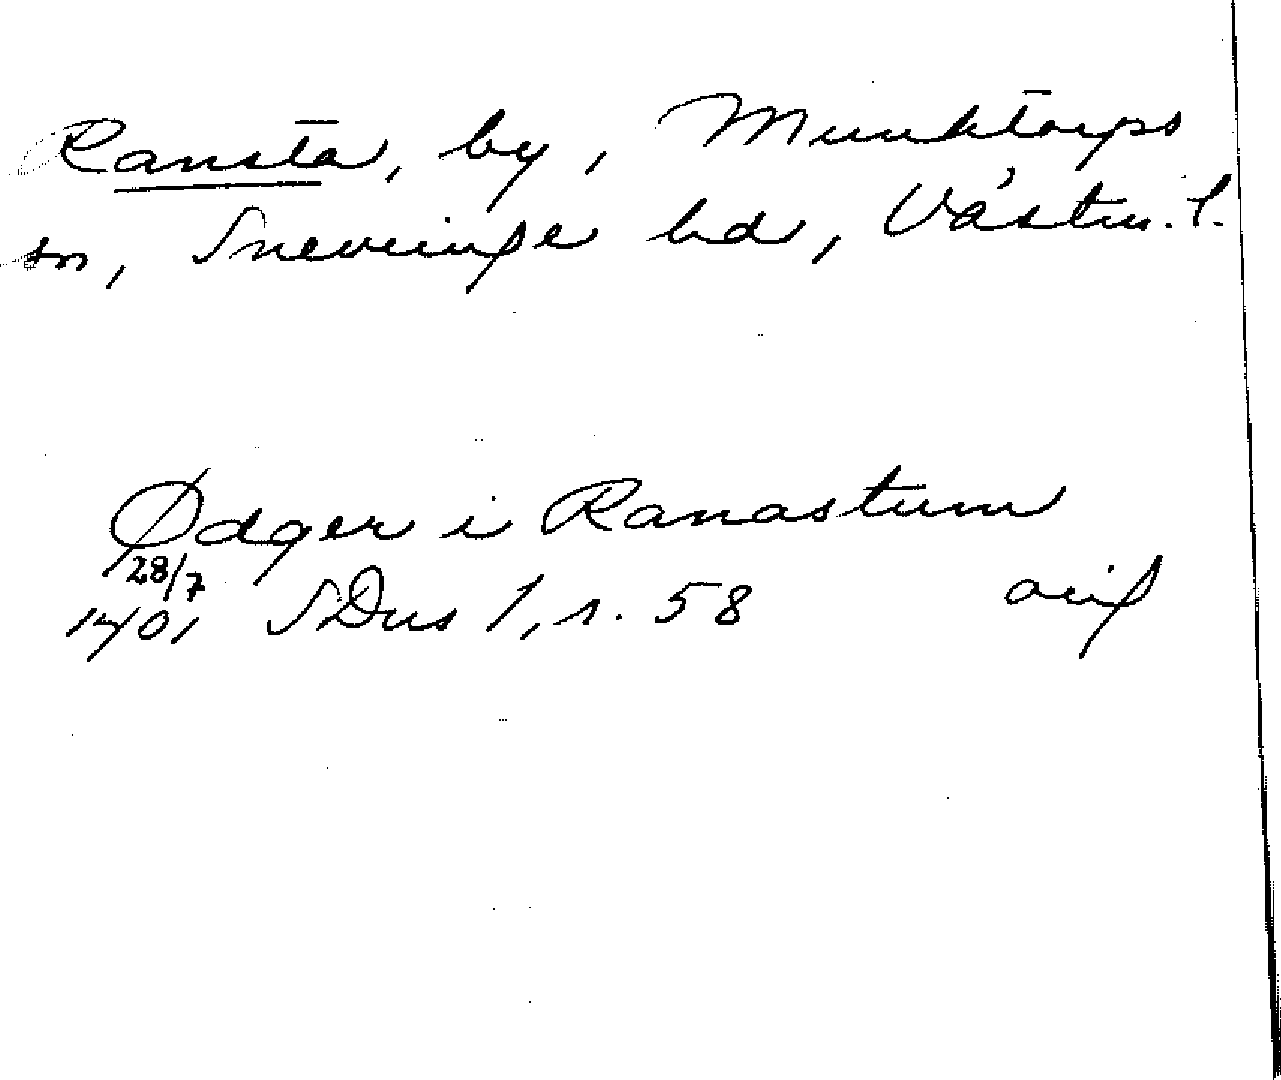 Ransta, by, Munktorps
sn, Snevringe hd, Västm. l.
Ødger i Ranastum
28/7
1401 SDns 1, s. 58 orig